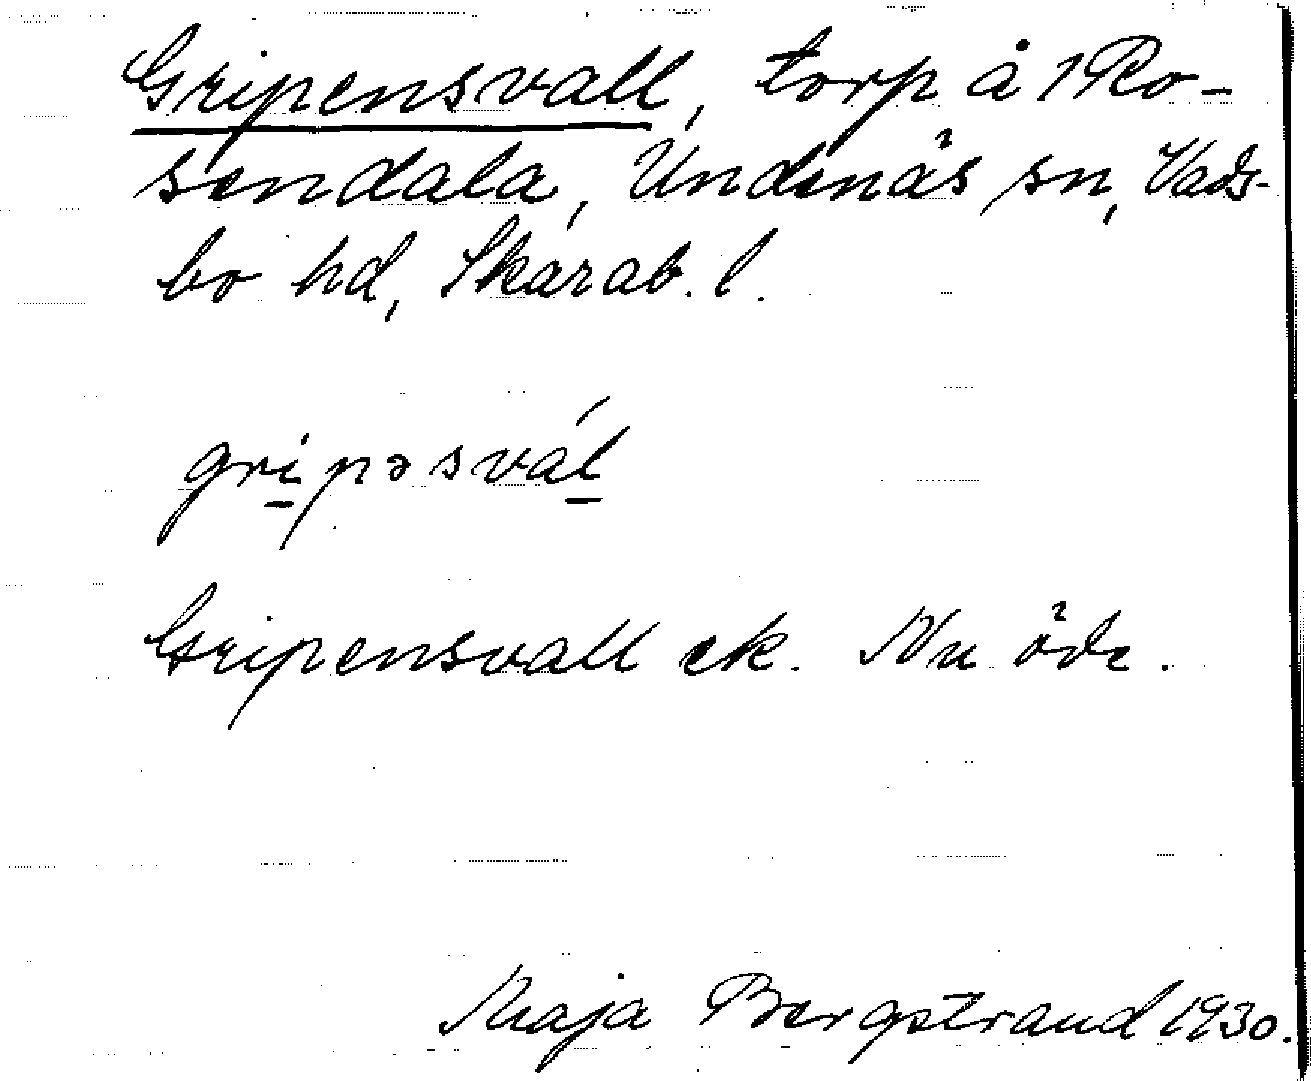 Gripensvall, torp å 1 Ro-
sendala, Undenäs sn, Vads-
bo hd, Skarab. l.
gripəsvál
Gripensvall ek. Nu öde.
Maja Bergstrand 1930.